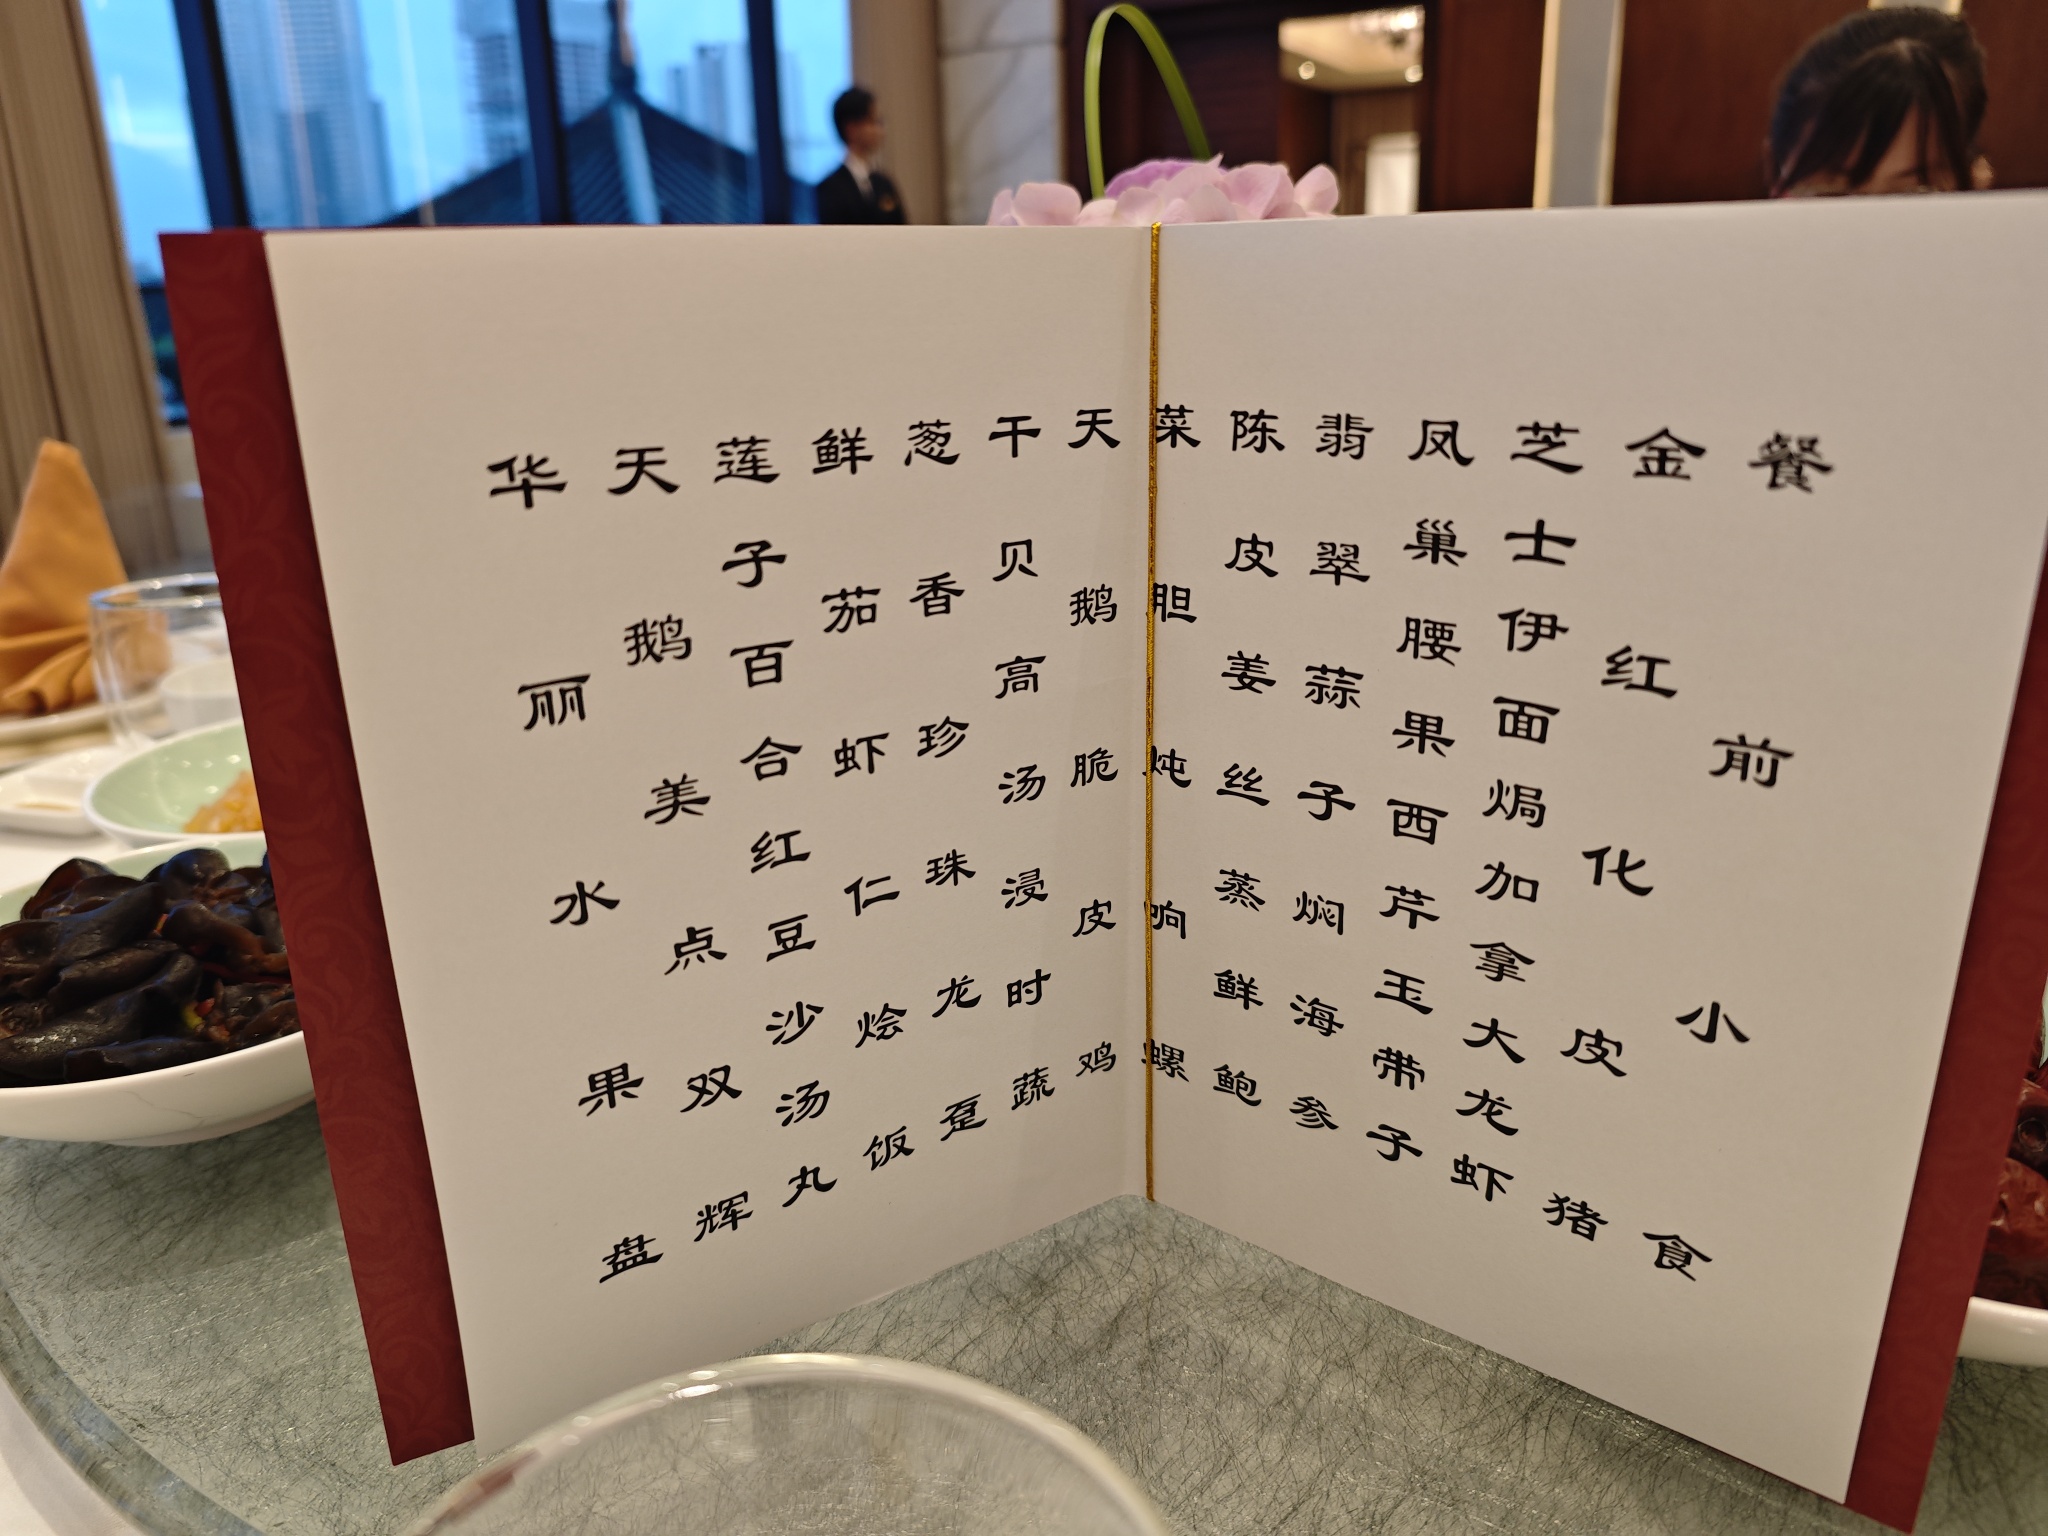 餐前小食
金红化皮猪
芝士伊面焗加拿大龙虾
凤巢腰果西芹玉带子
翡翠蒜子焖海参
陈皮姜丝蒸鲜鲍
菜胆炖响螺
天鹅脆皮鸡
干贝高汤浸时蔬
葱香珍珠龙趸
鲜茄虾仁烩饭
莲子百合红豆沙汤丸
天鹅美点双辉
华丽水果盘